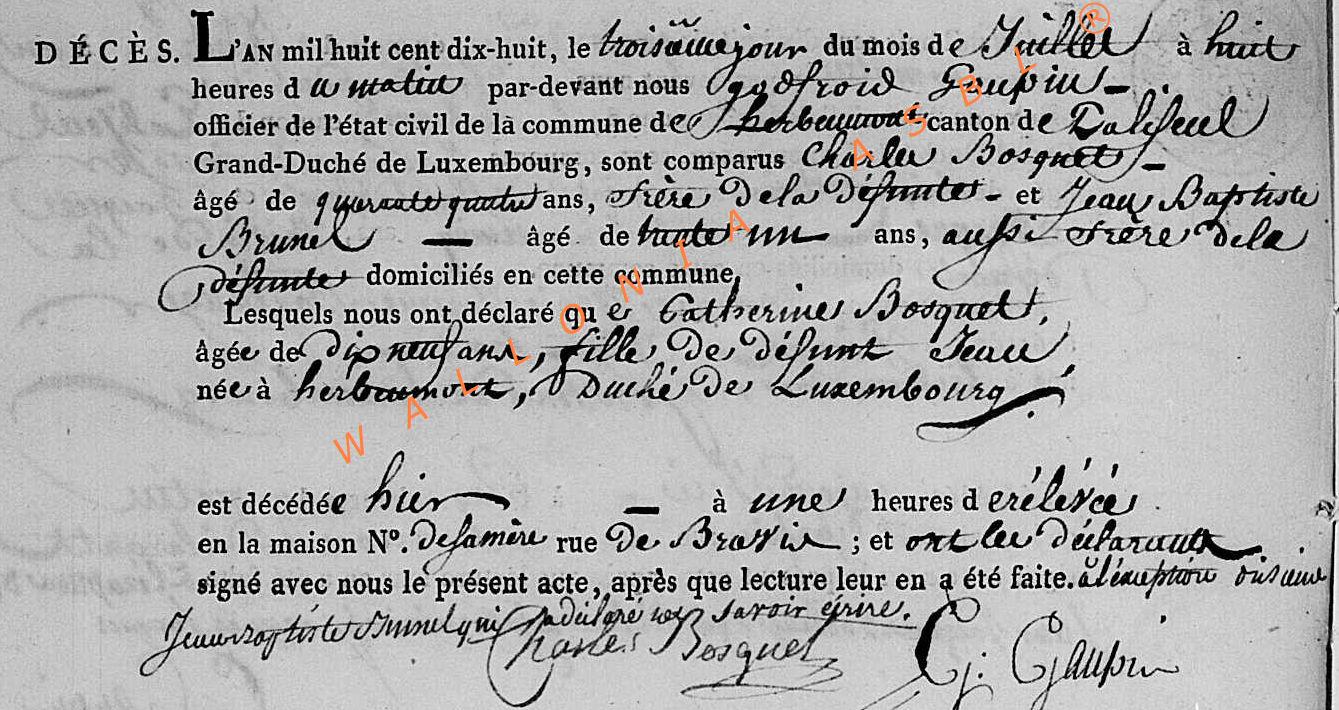 DÉCÈS. L'AN mil huit cent dix-huit, le troisième jour du mois de Juillet à huit
heures du matin par-devant nous godfroid Gaupin
officier de l'état civil de la commune de herbeumont canton de Paliseul
Grand-Duché de Luxembourg, sont comparus Charles Bosquet
âgé de quarante quatre ans, frère de la défunte - et Jean Baptiste
Brunel — âgé de trente un ans, aussi frère de la
défunte domiciliés en cette commune,
Lesquels nous ont déclaré que Catherine Bosquet,
âgée de dix neuf ans, fille de défunt Jean
née à herbeumont, Duché de Luxembourg
est décédée hier — à une heures de rélevée
en la maison N°. de sa mère rue de ; et ont les déclarants
signé avec nous le présent acte, après que lecture leur en a été faite. à l'exception
Jean Baptiste Brunel qui a déclaré ne savoir écrire.
Charles Bosquet G. Gaupin
WALLONIA ASBL ®